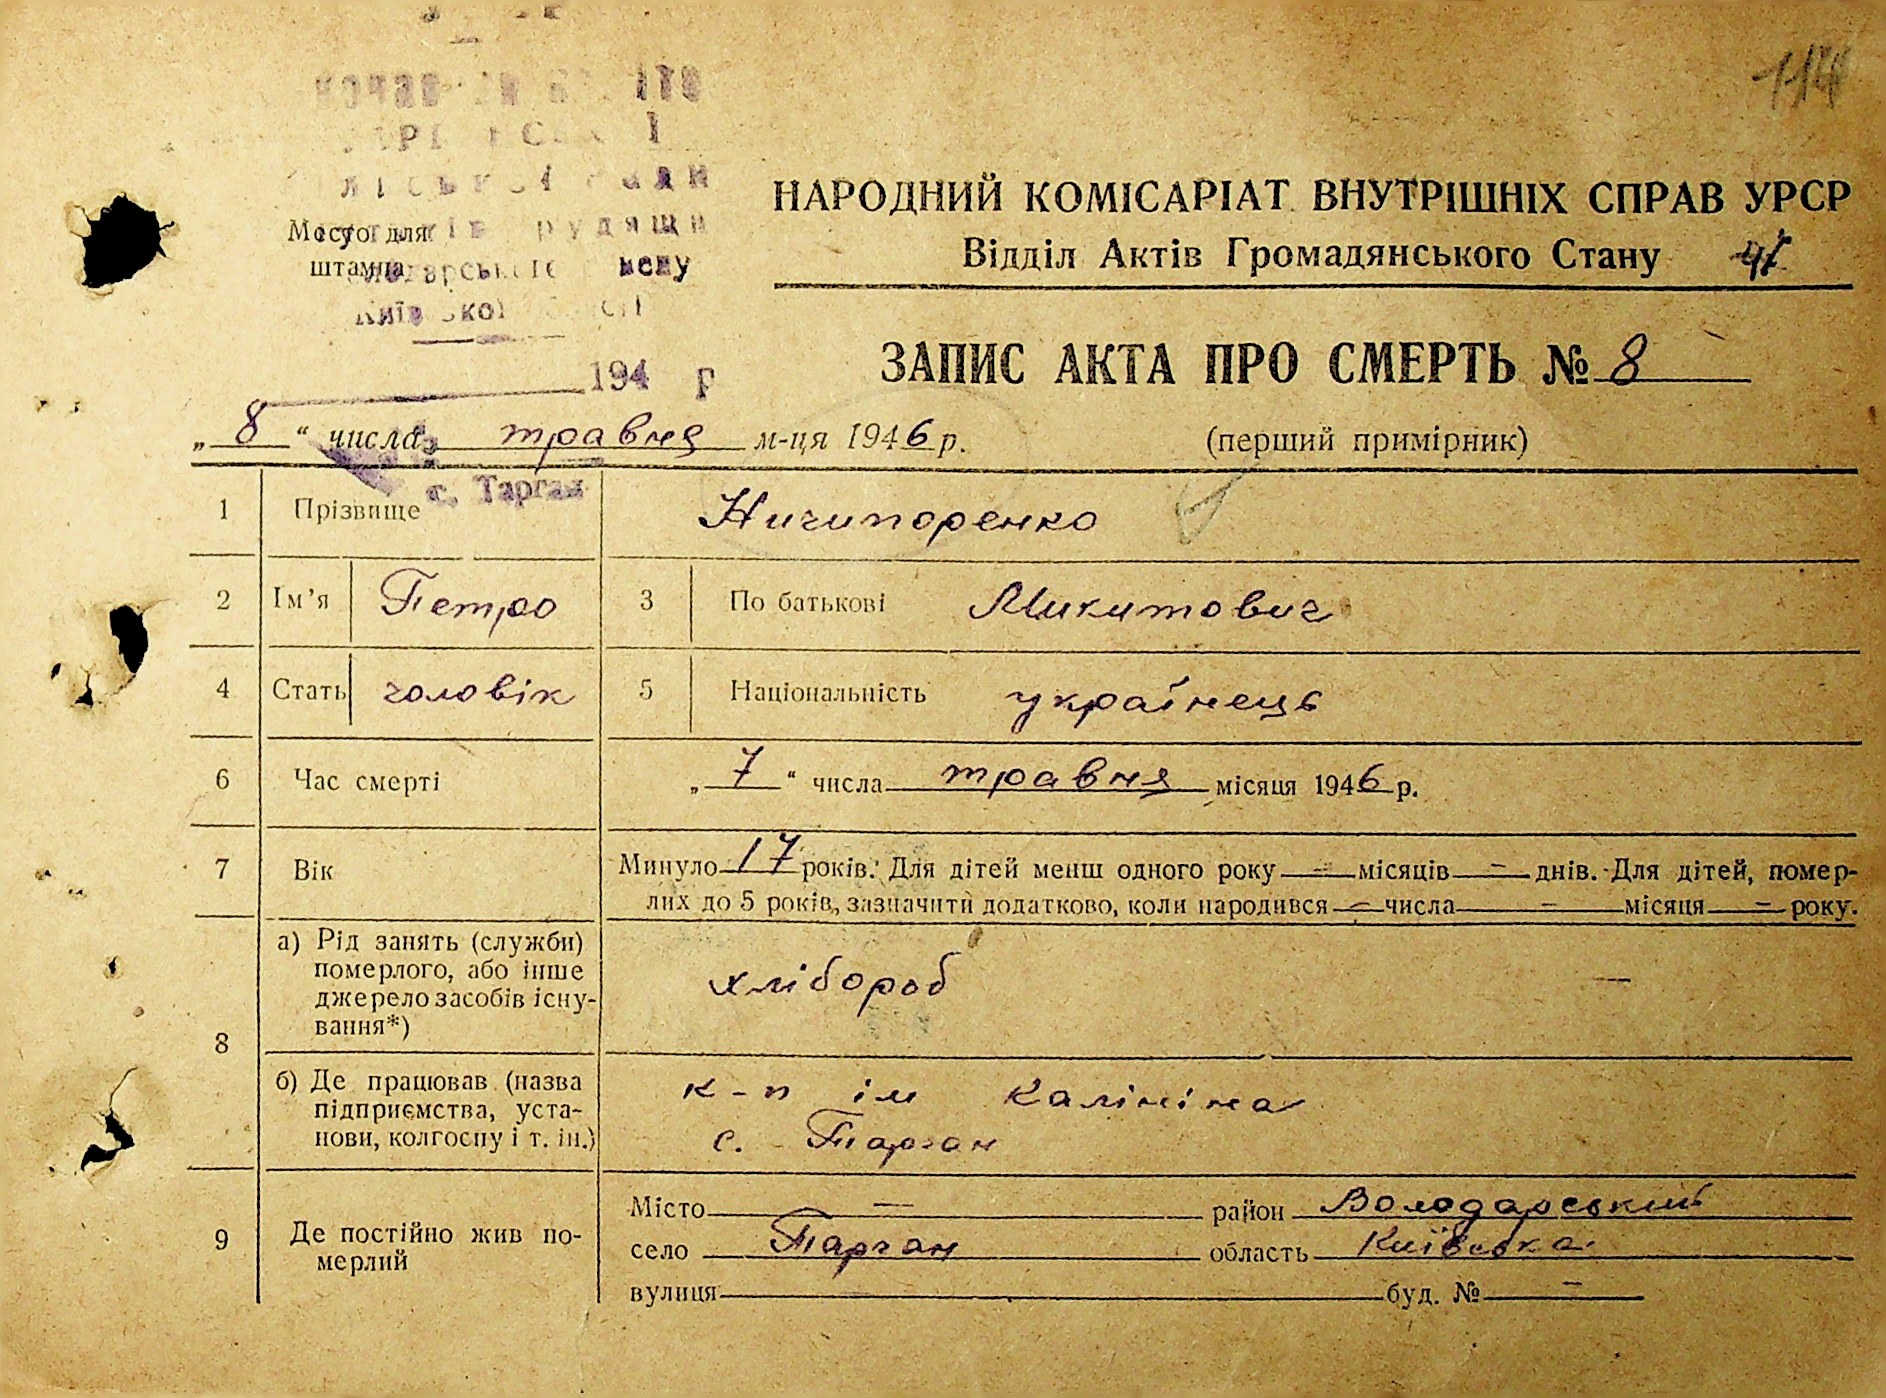 114
Київської
Місце для
штампа
НАРОДНИЙ КОМІСАРІАТ ВНУТРІШНІХ СПРАВ УРСР
Відділ Актів Громадянського Стану
ЗАПИС АКТА ПРО СМЕРТЬ № 8
194 р
„ 8 “ числа травня м-ця 1946 р.
(перший примірник)
с. Тарган
1 Прізвище Ничипоренко
2 Ім’я Петро 3 По батькові Микитович
4 Стать чоловік 5 Національність українець
6 Час смерті „ 7 “ числа травня місяця 1946 р.
7 Вік Минуло 17 років. Для дітей менш одного року — місяців — днів. Для дітей, помер-
лих до 5 років, зазначити додатково, коли народився — числа — місяця — року.
8 а) Рід занять (служби)
померлого, або інше
джерело засобів існу-
вання*)
хлібороб —
б) Де працював (назва
підприємства, уста-
нови, колгоспу і т. ін.)
к-п ім Калініна
с. Тарган
9 Де постійно жив по-
мерлий
Місто — район Володарський
село Тарган область Київська
вулиця буд. № —